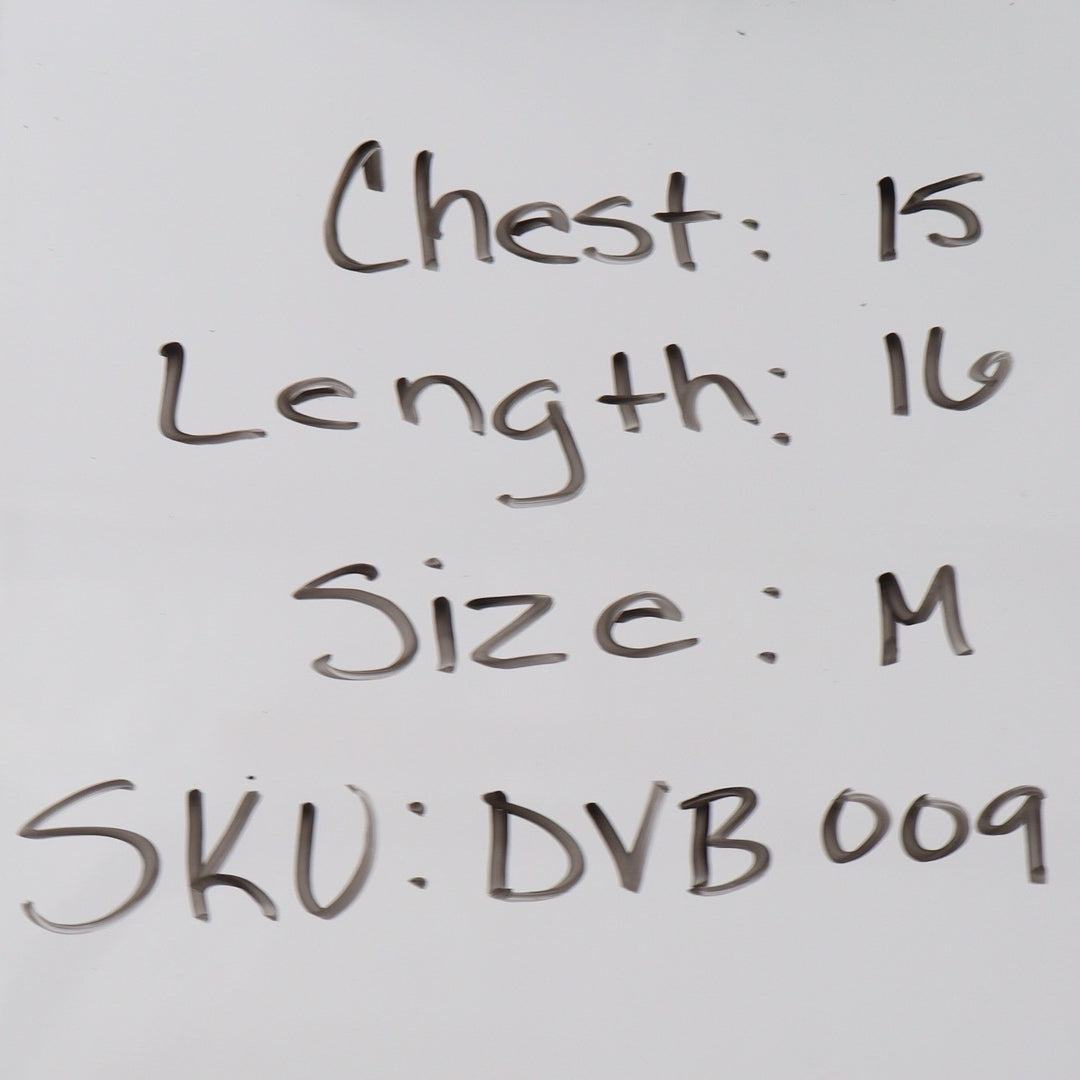 Chest: 15
Length: 16
Size: M
SKU: DVB 009